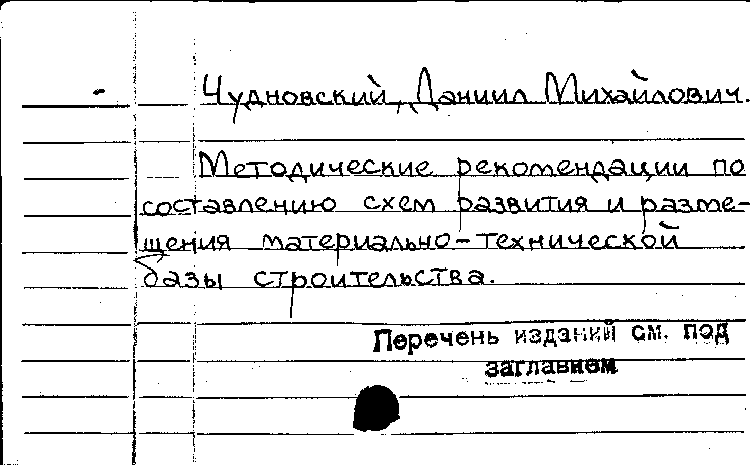 Чудновский, Даниил Михайлович.
Методические рекомендации по
составлению схем развития и разме-
щения материально-технической
базы строительства.
Перечень изданий см. под
заглавием